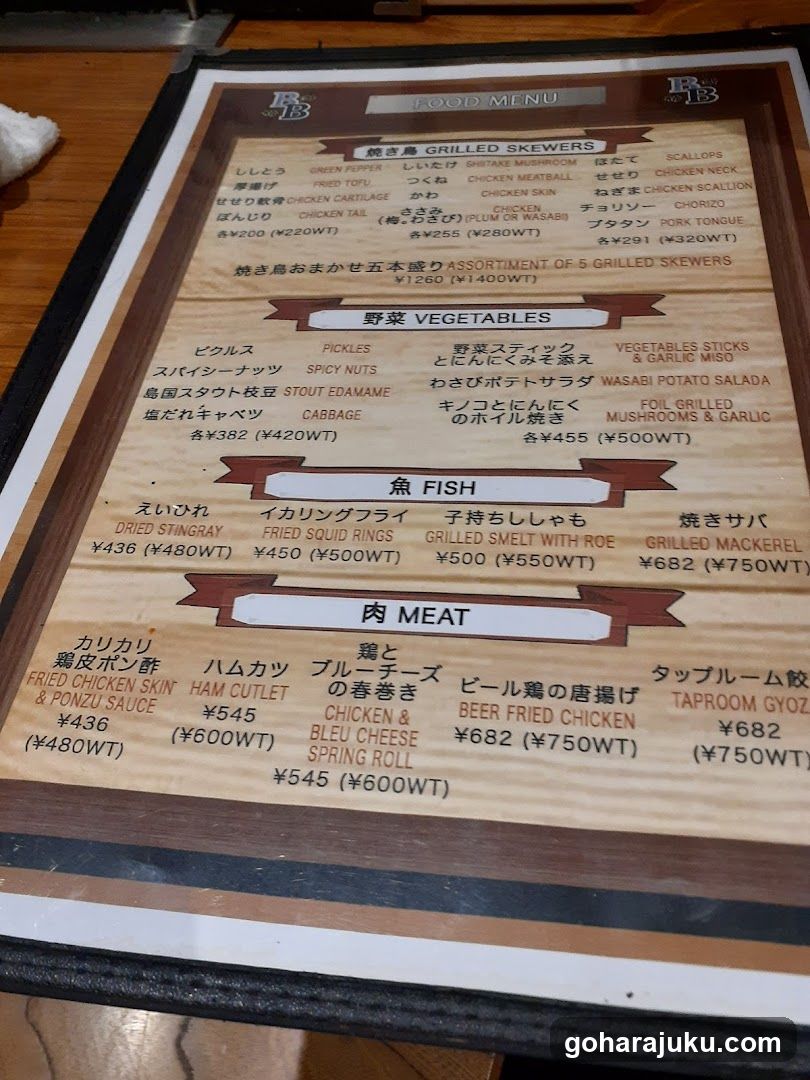 BB
FOOD MENU
BB
焼き鳥 GRILLED SKEWERS
ししとう GREEN PEPPER しいたけ SHIITAKE MUSHROOM ほたて SCALLOPS
厚揚げ FRIED TOFU つくね CHICKEN MEATBALL せせり CHICKEN NECK
せせり軟骨 CHICKEN CARTILAGE かわ CHICKEN SKIN ねぎま CHICKEN SCALLION
ぼんじり CHICKEN TAIL ささみ (梅。わさび) CHICKEN (PLUM OR WASABI) チョリソー CHORIZO
ブタタン PORK TONGUE
各¥200 (¥220WT) 各¥255 (¥280WT) 各¥291 (¥320WT)
焼き鳥おまかせ五本盛り ASSORTIMENT OF 5 GRILLED SKEWERS
¥1260 (¥1400WT)
野菜 VEGETABLES
ピクルス PICKLES
スパイシーナッツ SPICY NUTS
島国スタウト枝豆 STOUT EDAMAME
塩だれキャベツ CABBAGE
各¥382 (¥420WT)
野菜スティック
とにんにくみそ添え
VEGETABLES STICKS
& GARLIC MISO
わさびポテトサラダ WASABI POTATO SALADA
キノコとにんにく
のホイル焼き
FOIL GRILLED
MUSHROOMS & GARLIC
各¥455 (¥500WT)
魚 FISH
えいひれ
DRIED STINGRAY
¥436 (¥480WT)
イカリングフライ
FRIED SQUID RINGS
¥450 (¥500WT)
子持ちししゃも
GRILLED SMELT WITH ROE
¥500 (¥550WT)
焼きサバ
GRILLED MACKEREL
¥682 (¥750WT)
肉 MEAT
カリカリ
鶏皮ポン酢
FRIED CHICKEN SKIN
& PONZU SAUCE
¥436
(¥480WT)
ハムカツ
HAM CUTLET
¥545
(¥600WT)
鶏と
ブルーチーズ
の春巻き
CHICKEN &
BLEU CHEESE
SPRING ROLL
¥545 (¥600WT)
ビール鶏の唐揚げ
BEER FRIED CHICKEN
¥682 (¥750WT)
タップルーム餃
TAPROOM GYOZ
¥682
(¥750WT)
goharajuku.com